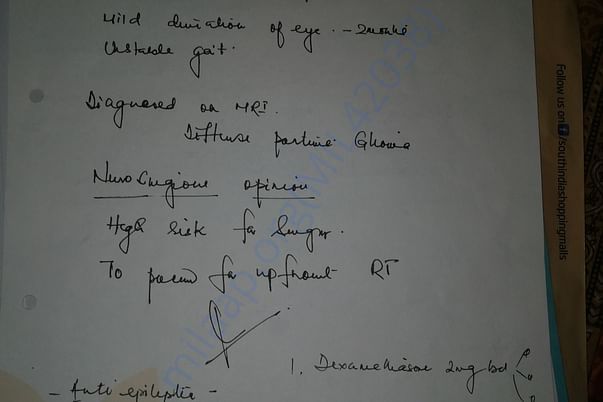 Mild deviation of eye. - 2months
Unstable gait.
Diagnosed on MRI.
Diffuse pontine Glioma
Neuro Surgions opinion
High risk for Surgery.
To proceed for upfront RT
1. Dexamethasone 2mg bd
- Anti epileptic -
Follow us on f/southindiashoppingmalls
milaap.org(MIL420361)